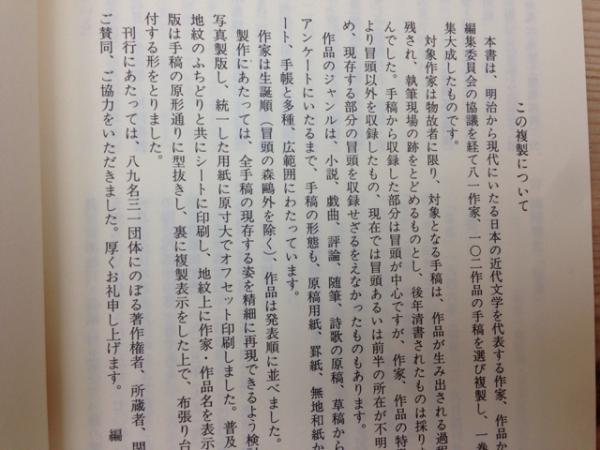 この複製について
本書は、明治から現代にいたる日本の近代文学を代表する作家、作品か
編集委員会の協議を経て八一作家、一〇二作品の手稿を選び複製し、一巻
集大成したものです。
対象作家は物故者に限り、対象となる手稿は、作品が生み出される過程
残され、執筆現場の跡をとどめるものとし、後年清書されたものは採りま
んでした。手稿から収録した部分は冒頭が中心ですが、作家、作品の特
より冒頭以外を収録したもの、現在では冒頭あるいは前半の所在が不明
め、現存する部分の冒頭を収録せざるをえなかったものもあります。
作品のジャンルは、小説、戯曲、評論、随筆、詩歌の原稿、草稿から
アンケートにいたるまで、手稿の形態も、原稿用紙、罫紙、無地和紙か
ート、手帳と多種、広範囲にわたっています。
作家は生誕順（冒頭の森鷗外を除く）、作品は発表順に並べました。
製作にあたっては、全手稿の現存する姿を精細に再現できるよう検
写真製版し、統一した用紙に原寸大でオフセット印刷しました。普及
地紋のふちどりと共にシートに印刷し、地紋上に作家・作品名を表示
版は手稿の原形通りに型抜きし、裏に複製表示をした上で、布張り台
付する形をとりました。
刊行にあたっては、八九名三一団体にのぼる著作権者、所蔵者、関
ご賛同、ご協力をいただきました。厚くお礼申し上げます。
編